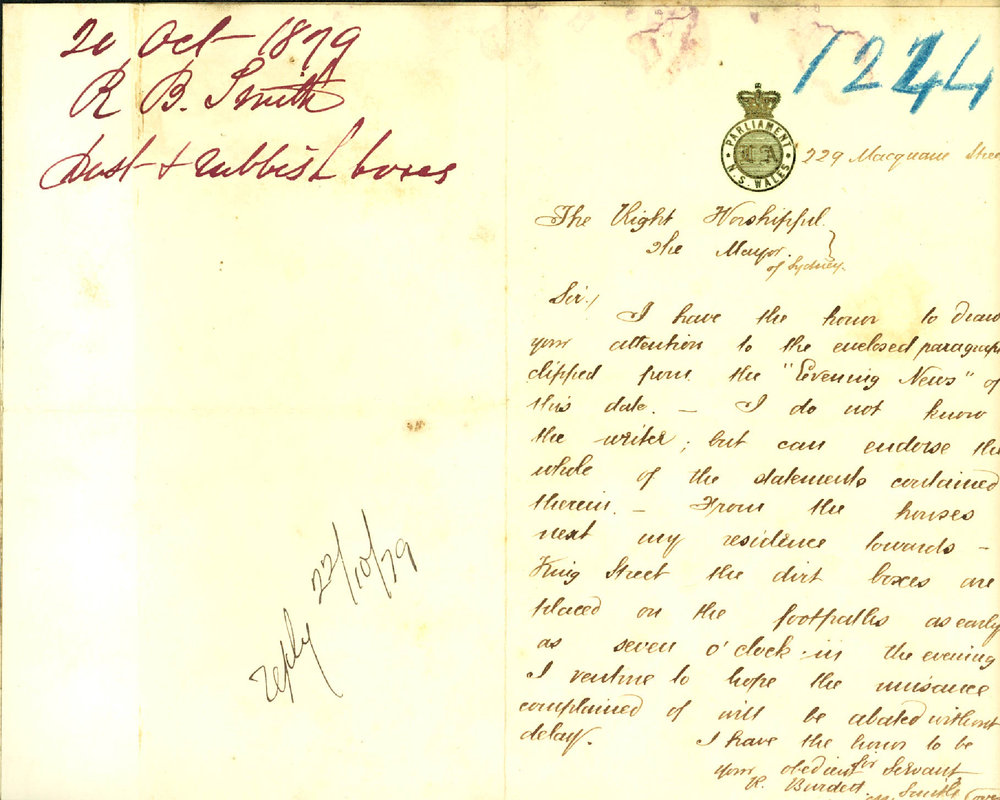 20 Oct 1879
R B. Smith
Dust & rubbish boxes
reply 22/10/79
1244
PARLIAMENT
N.S. WALES
229 Macquarie Street
The Right Worshipful
The Mayor
of Sydney.
Sir,
I have the honor to draw
your attention to the enclosed paragraph
clipped from the "Evening News" of
this date. — I do not know
the writer; but can endorse the
whole of the statements contained
therein. — From the houses
next my residence towards —
King Street the dirt boxes are
placed on the footpaths as early
as seven o'clock in the evening
I venture to hope the nuisance
complained of will be abated without
delay. I have the honor to be
Your obedient Servant
R. Burdett Smith